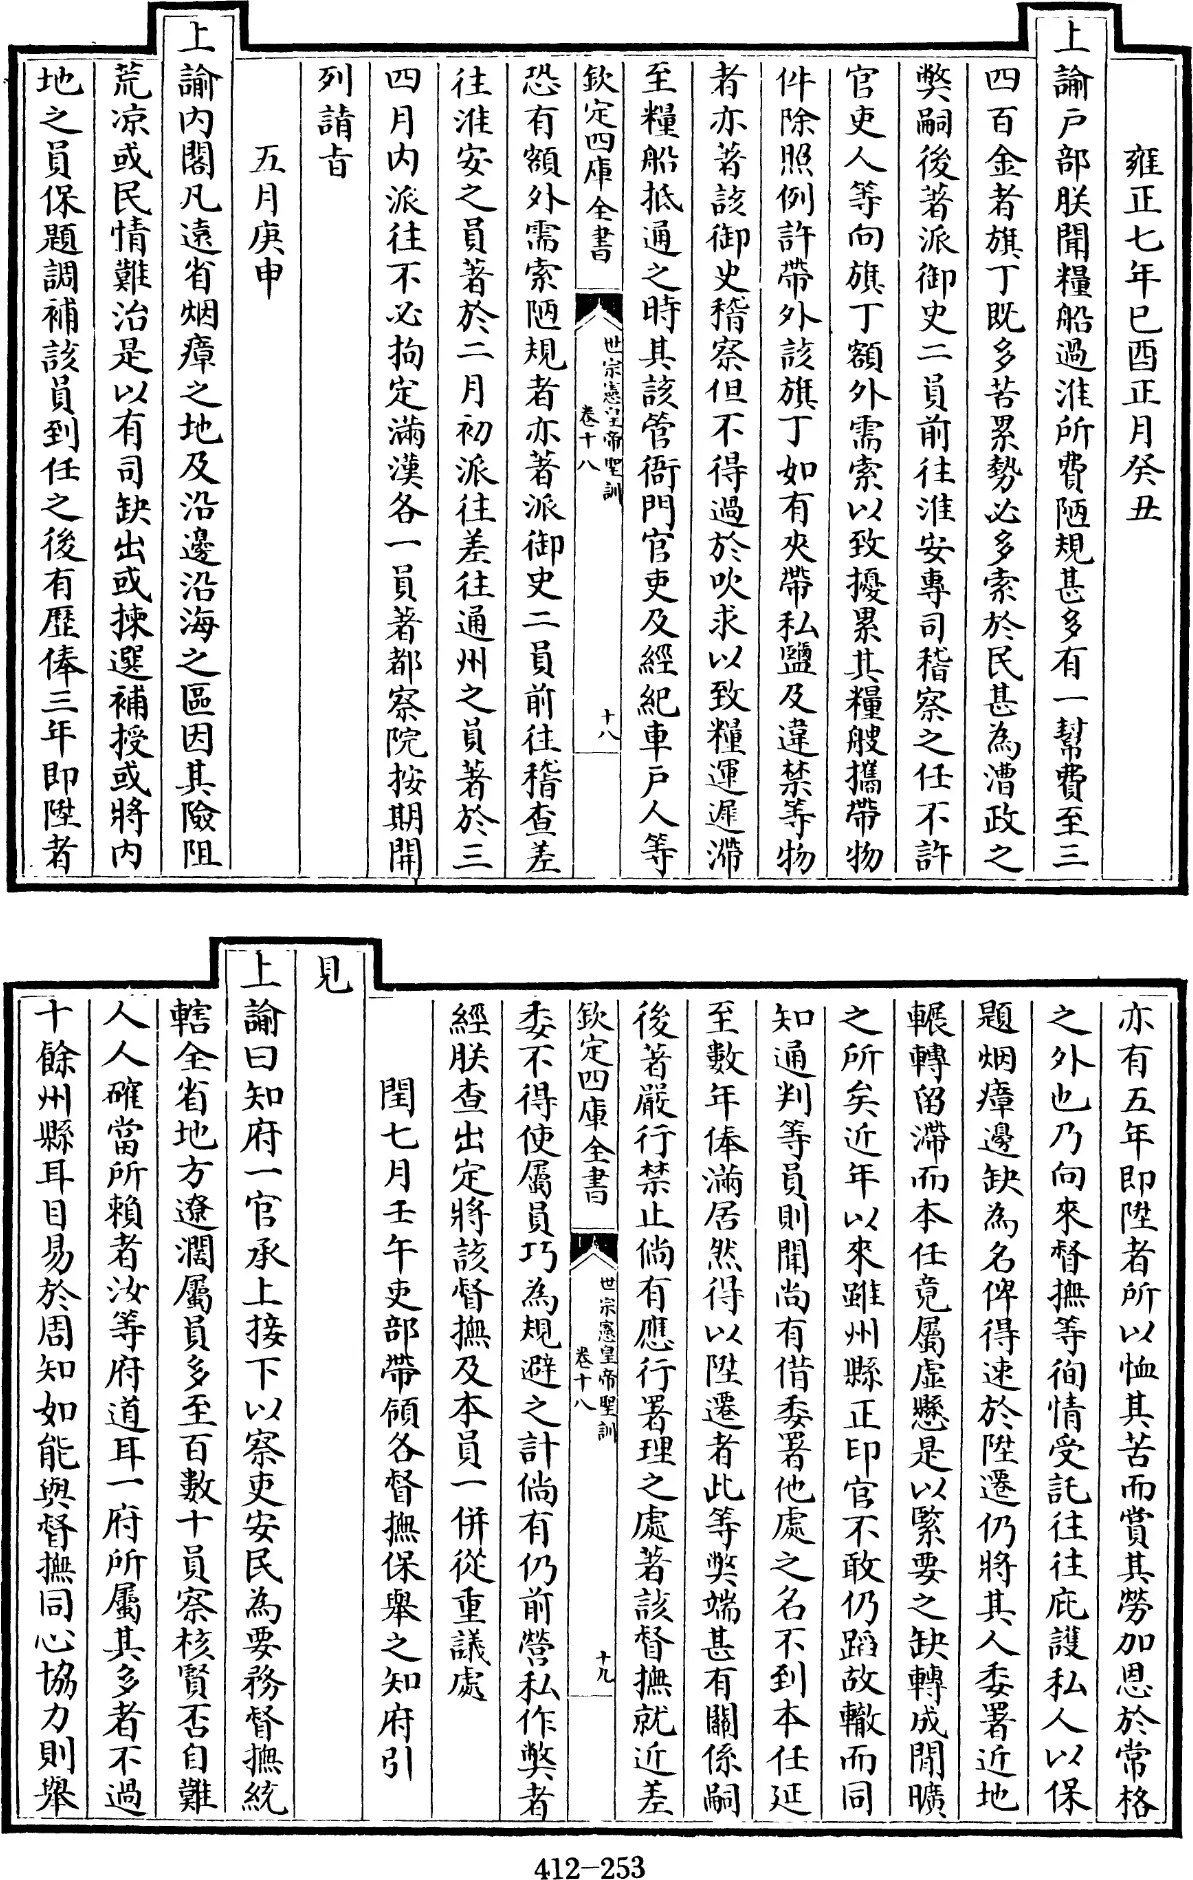 雍正七年已酉正月癸丑
上諭户部朕聞糧船過淮所費陋規甚多有一幫費至三
四百金者旗丁既多苦累勢必多索於民甚為漕政之
弊嗣後著派御史二員前往淮安專司稽察之任不許
官吏人等向旗丁額外需索以致擾累其糧艘攜帶物
件除照例許帶外該旗丁如有夾帶私鹽及違禁等物
者亦著該御史稽察但不得過於吹求以致糧運遲滯
至糧船抵通之時其該管衙門官吏及經紀車户人等
欽定四庫全書
世宗憲皇帝聖訓
卷十八
十八
恐有額外需索陋規者亦著派御史二員前往稽查差
往淮安之員著於二月初派往差往通州之員著於三
四月内派往不必拘定滿漢各一員著都察院按期開
列請㫖
五月庚申
上諭内閣凡遠省烟瘴之地及沿邊沿海之區因其險阻
荒凉或民情難治是以有司缺出或揀選補授或將内
地之員保題調補該員到任之後有歷俸三年即陞者
亦有五年即陞者所以恤其苦而賞其勞加恩於常格
之外也乃向來督撫等徇情受託往往庇護私人以保
題烟瘴邊缺為名俾得速於陞遷仍將其人委署近地
輾轉留滯而本任竟屬虛懸是以緊要之缺轉成閒曠
之所矣近年以來雖州縣正印官不敢仍蹈故轍而同
知通判等員則聞尚有借委署他處之名不到本任延
至數年俸滿居然得以陞遷者此等弊端甚有關係嗣
後著嚴行禁止倘有應行署理之處著該督撫就近差
欽定四庫全書
世宗憲皇帝聖訓
卷十八
十九
委不得使屬員巧為規避之計倘有仍前營私作弊者
經朕查出定將該督撫及本員一併從重議處
閏七月壬午吏部帶領各督撫保舉之知府引
見
上諭曰知府一官承上接下以察吏安民為要務督撫統
轄全省地方遼濶屬員多至百數十員察核賢否自難
人人確當所賴者汝等府道耳一府所屬其多者不過
十餘州縣耳目易於周知如能與督撫同心協力則舉
412-253